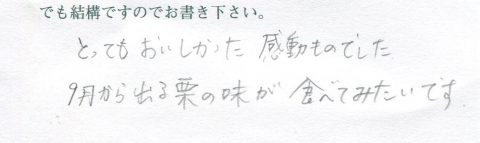 でも結構ですのでお書き下さい。
とってもおいしかった 感動ものでした
9月から出る栗の味が 食べてみたいです